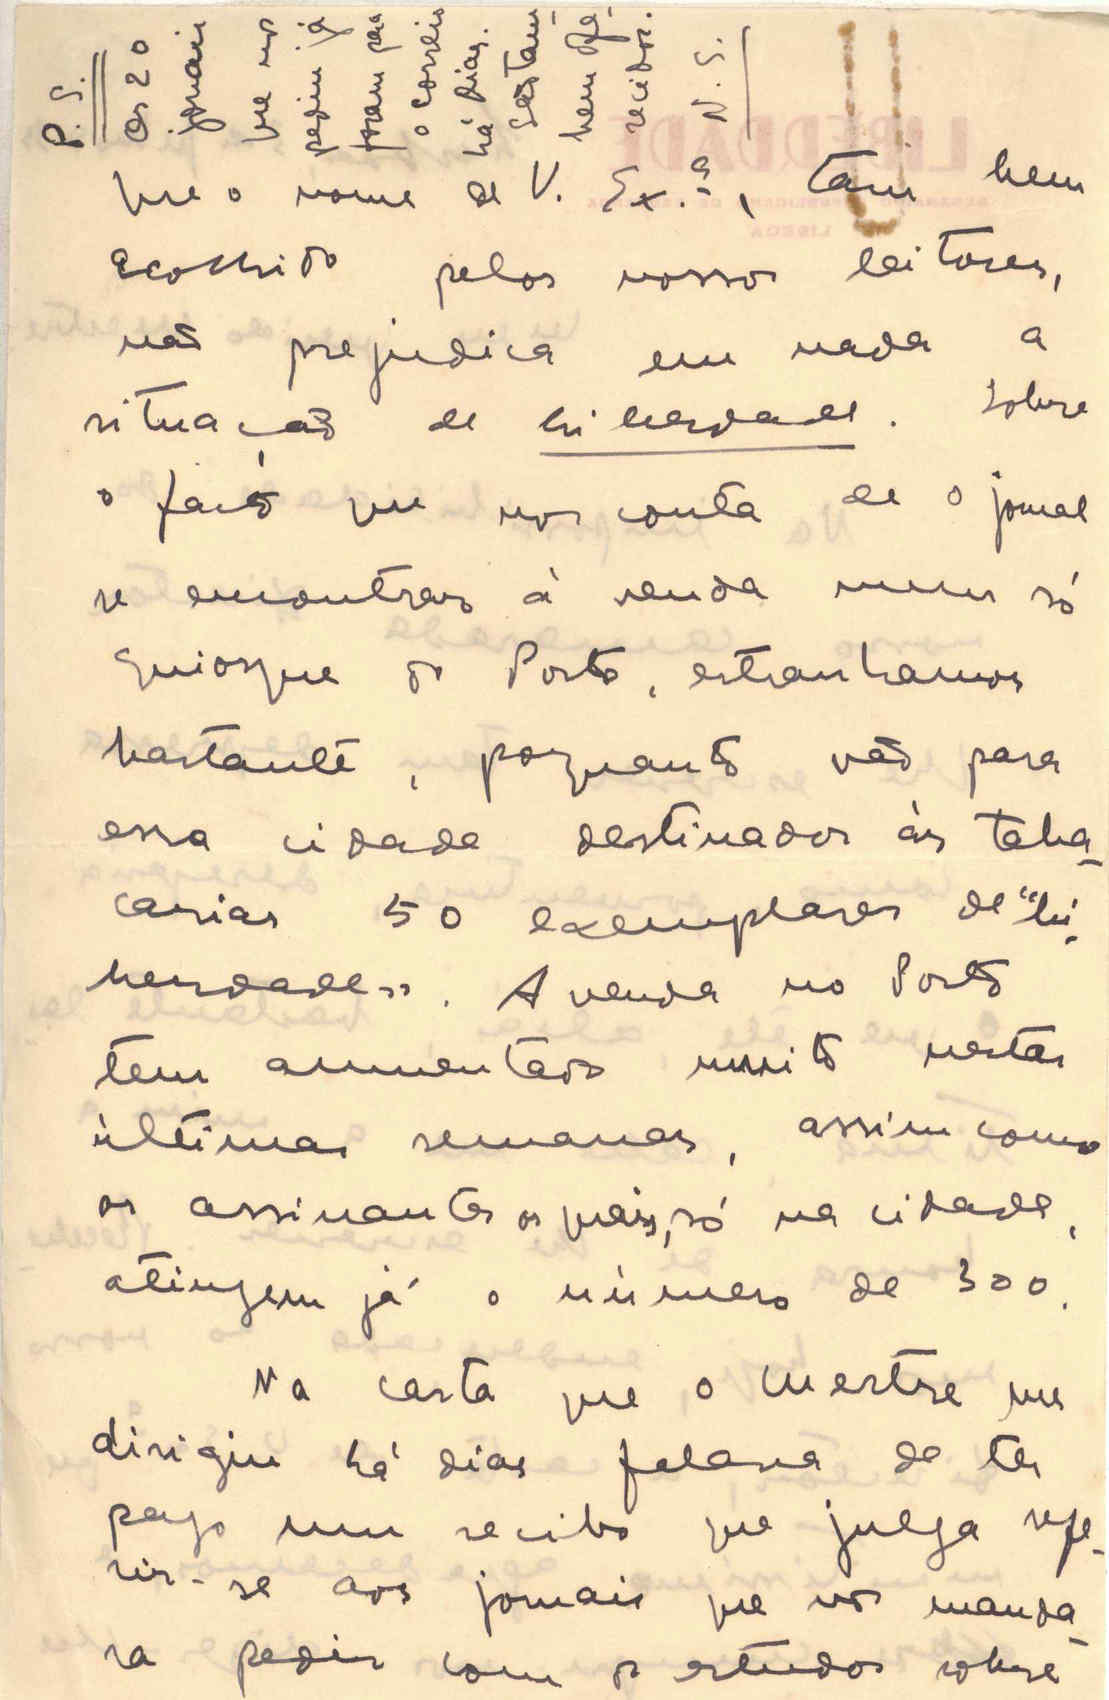 P. S.
Os 20
jornais
que nos
pediu já
foram pelo
o correio
há dias.
Se tam
bem
recibo.
N. S.
que o nome de V. Ex.ª, tam bem
acolhido pelos nossos leitores,
não prejudica em nada a
situação de Liberdade. Sobre
o facto que nos conta de o jornal
se encontrar à venda num só
quiosque do Porto, estranhamos
bastante, porquanto vão para
essa cidade destinados às taba-
carias 50 exemplares de "Li-
berdade". A venda no Porto
tem aumentado muito nestas
últimas semanas, assim como
os assinantes os quais, só na cidade,
atingem já o número de 300.
Na carta que o Mestre me
dirigiu há dias falava de ter
pago um recibo que julga refe-
rir-se aos jornais que nos manda-
ra pedir com os estudos sobre